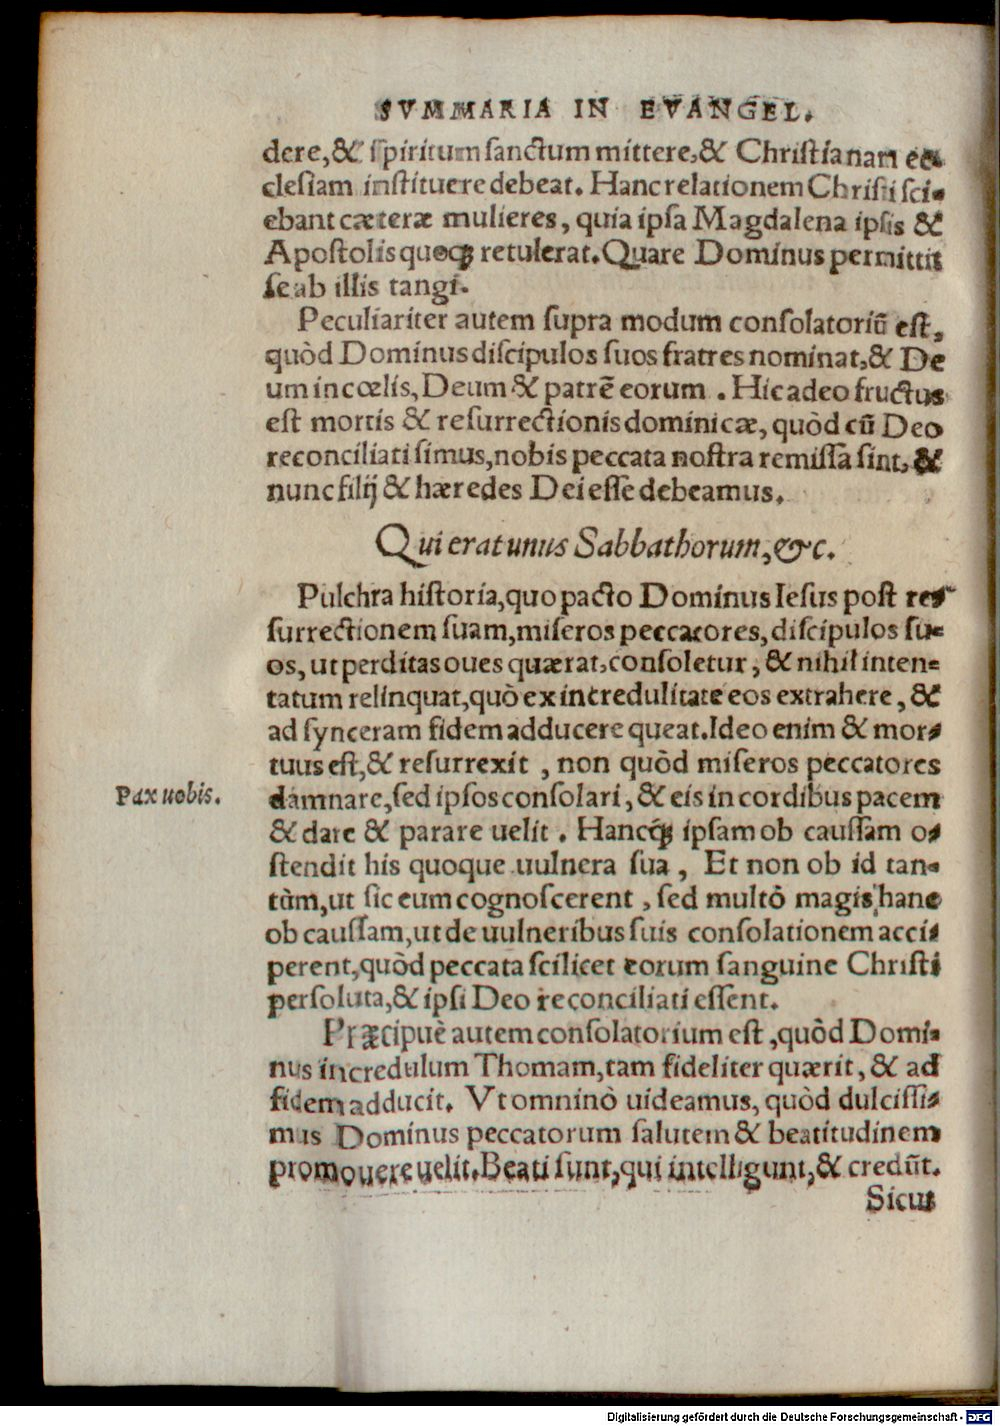 SVMMARIA IN EVANGEL.
dere, & spiritum sanctum mittere, & Christianam ec⸗
clesiam instituere debeat. Hanc relationem Christi sci⸗
ebant cæteræ mulieres, quia ipsa Magdalena ipsis &
Apostolis quoq; retulerat. Quare Dominus permittit
se ab illis tangi.
Peculiariter autem supra modum consolatoriũ est,
quòd Dominus discipulos suos fratres nominat, & De
um in cœlis, Deum & patrẽ eorum. Hic adeo fructus
est mortis & resurrectionis dominicæ, quòd cũ Deo
reconciliati simus, nobis peccata nostra remissa sint, &
nunc filij & hæredes Dei esse debeamus.
Qui erat unus Sabbathorum, &c.
Pulchra historia, quo pacto Dominus Iesus post re⸗
surrectionem suam, miseros peccatores, discipulos su⸗
os, ut perditas oues quærat, consoletur, & nihil inten⸗
tatum relinquat, quò ex incredulitate eos extrahere, &
ad synceram fidem adducere queat. Ideo enim & mor⸗
tuus est, & resurrexit, non quòd miseros peccatores
Pax uobis.
damnare, sed ipsos consolari, & eis in cordibus pacem
& dare & parare uelit. Hancq́; ipsam ob caussam o⸗
stendit his quoque uulnera sua, Et non ob id tan⸗
tùm, ut sic eum cognoscerent, sed multò magis hanc
ob caussam, ut de uulneribus suis consolationem acci⸗
perent, quòd peccata scilicet eorum sanguine Christi
persoluta, & ipsi Deo reconciliati essent.
Præcipuè autem consolatorium est, quòd Domi⸗
nus incredulum Thomam, tam fideliter quærit, & ad
fidem adducit. Vt omninò uideamus, quòd dulcissi⸗
mus Dominus peccatorum salutem & beatitudinem
promouere uelit. Beati sunt, qui intelligunt, & credũt.
Sicut
Digitalisierung gefördert durch die Deutsche Forschungsgemeinschaft - DFG